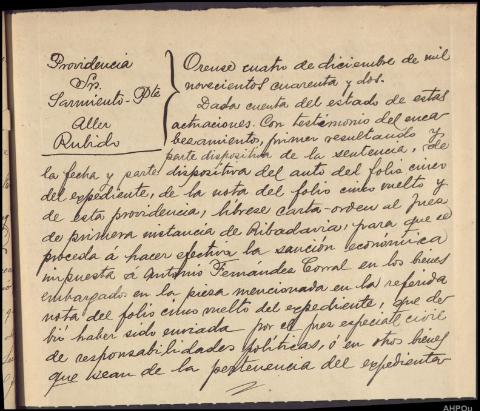 Providencia
Sres.
Sarmiento-Pte
Aller
Rubido
Orense cuatro de diciembre de mil
novecientos cuarenta y dos.
Dada cuenta del estado de estas
actuaciones. Con testimonio del enca-
bezamiento, primer resultando y
parte dispositiva de la sentencia, de
la fecha y parte dispositiva del auto del folio cinco
del expediente, de la nota del folio cinco vuelto y
de esta providencia, líbrese carta-orden al Juez
de primera instancia de Ribadavia, para que se
proceda á hacer efectiva la sanción económica
impuesta á Antonio Fernandez Corral en los bienes
embargados en la pieza mencionada en la referida
nota del folio cinco vuelto del expediente, que de-
bió haber sido enviada por el juez especial civil
de responsabilidades políticas, ó en otros bienes
que sean de la pertenencia del expedienta-
AHPOu